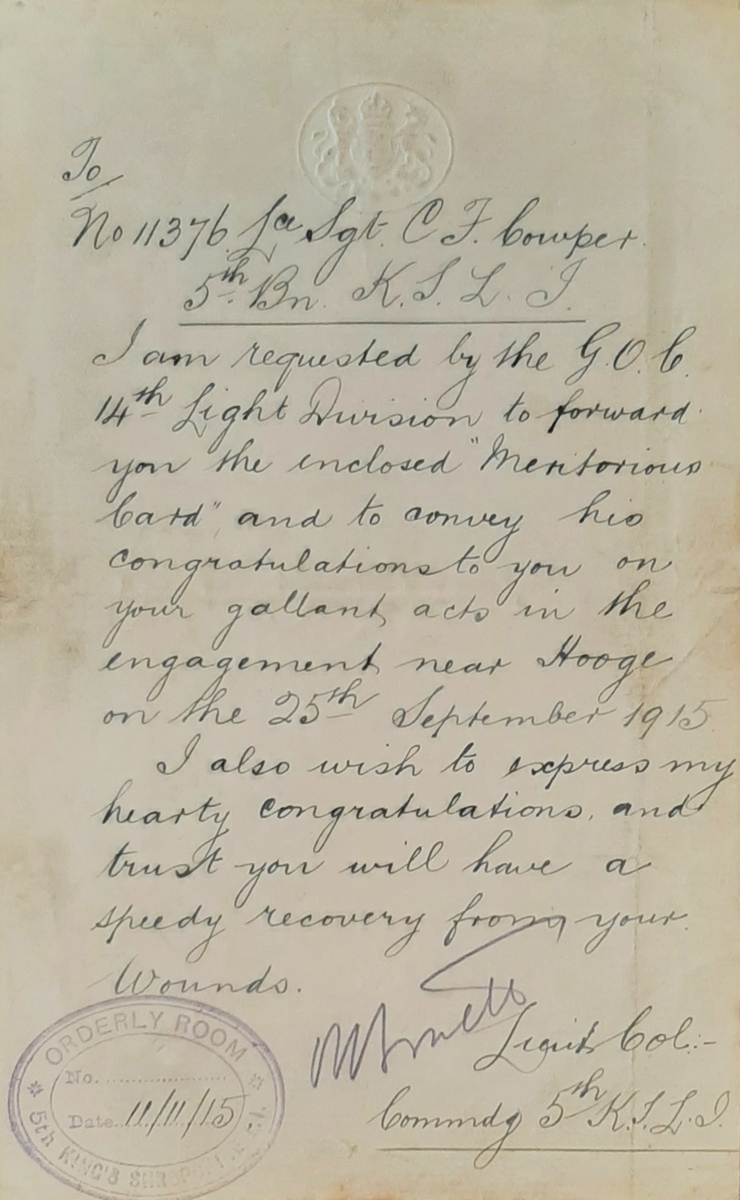 To
No 11376 Lce Sgt. C F. Cowper.
5th Bn. K. S. L. I.
I am requested by the G.O.C.
14th Light Division to forward
you the enclosed "Meritorious
Card", and to convey his
congratulations to you on
your gallant acts in the
engagement near Hooge
on the 25th September 1915
I also wish to express my
hearty congratulations, and
trust you will have a
speedy recovery from your
Wounds.
Lieut Col:-
Commdg 5th K.S.L.I.
ORDERLY ROOM
No.
Date 11/11/15
5th KING'S